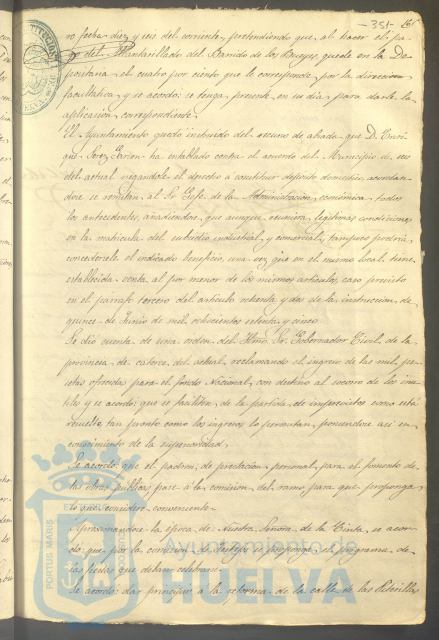 -351-
ro fecha diez y seis del corriente, pretendiendo que, al hacer el pa-
go del Alcantarillado del Barrido de los Bueyes, quede en la De-
positaria el cuatro por ciento que le corresponde, por la direccion
facultativa, y se acordó: se tenga presente, en su dia, para darle la
aplicacion correspondiente.
El Ayuntamiento quedó instruido del recurso de alzada que D. Enri-
que Perez Carrion ha entablado contra el acuerdo del Municipio de seis
del actual negandole el derecho a constituir deposito domestico, acordan-
dose se remitan al Sr. Gefe de la Administracion economica todos
los antecedentes, añadiendose, que aunque reuniera legitimas condiciones
en la matricula del subsidio industrial y comercial, tampoco podria
concedersele el indicado beneficio, una vez que en el mismo local tiene
establecida venta al por menor de los mismos articulos, caso previsto
en el parrafo tercero del articulo ochenta y dos de la instruccion de
quince de Junio de mil ochocientos setenta y cinco
Se dió cuenta de una orden del Iltmo. Sr. Gobernador Civil de la
provincia de catorce del actual, reclamando el ingreso de las mil pe-
setas ofrecidas para el fondo Nacional, con destino al socorro de los
y se acordó: que se faciliten de la partida de imprevistos como está
resuelto, tan pronto como los ingresos lo permitan, poniendose asi en
conocimiento de la superioridad.
Se acordó: que el padron de prestacion personal, para el fomento de
las obras publicas, pase á la comision del ramo para que proponga
lo que considere conveniente.
Aproximandose la época de Nuestra Señora de la Cinta, se acor-
dó: que por la comision de festejos se proponga el programa de
las fiestas que deban celebrarse.
Se acordó: dar principio a la reforma de la calle de las
PORTUS MARIS
Ayuntamiento de
HUELVA